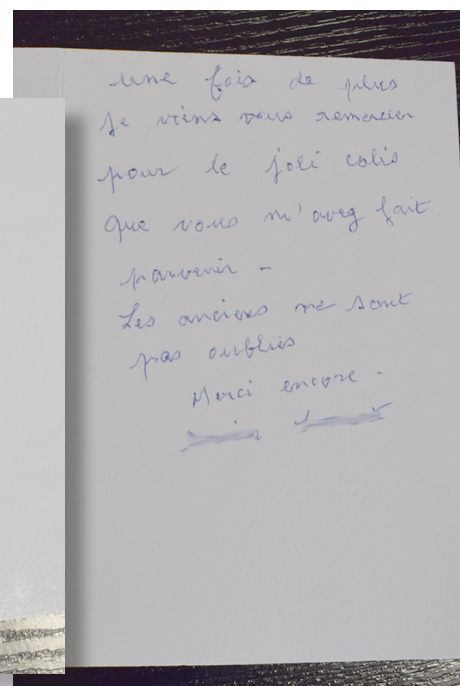 Une fois de plus
je viens vous remercier
pour le joli colis
que vous m'avez fait
parvenir -
Les anciens ne sont
pas oubliés
Merci encore -